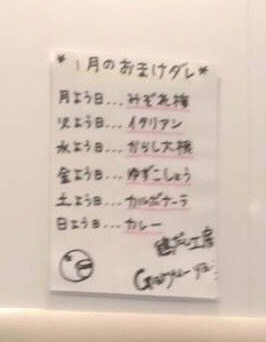 *1月のおまけダレ*
月よう日...みぞれ梅
火よう日...イタリアン
水よう日...からし大根
金よう日...ゆずこしょう
土よう日...カルボナーラ
日よう日...カレー
工房